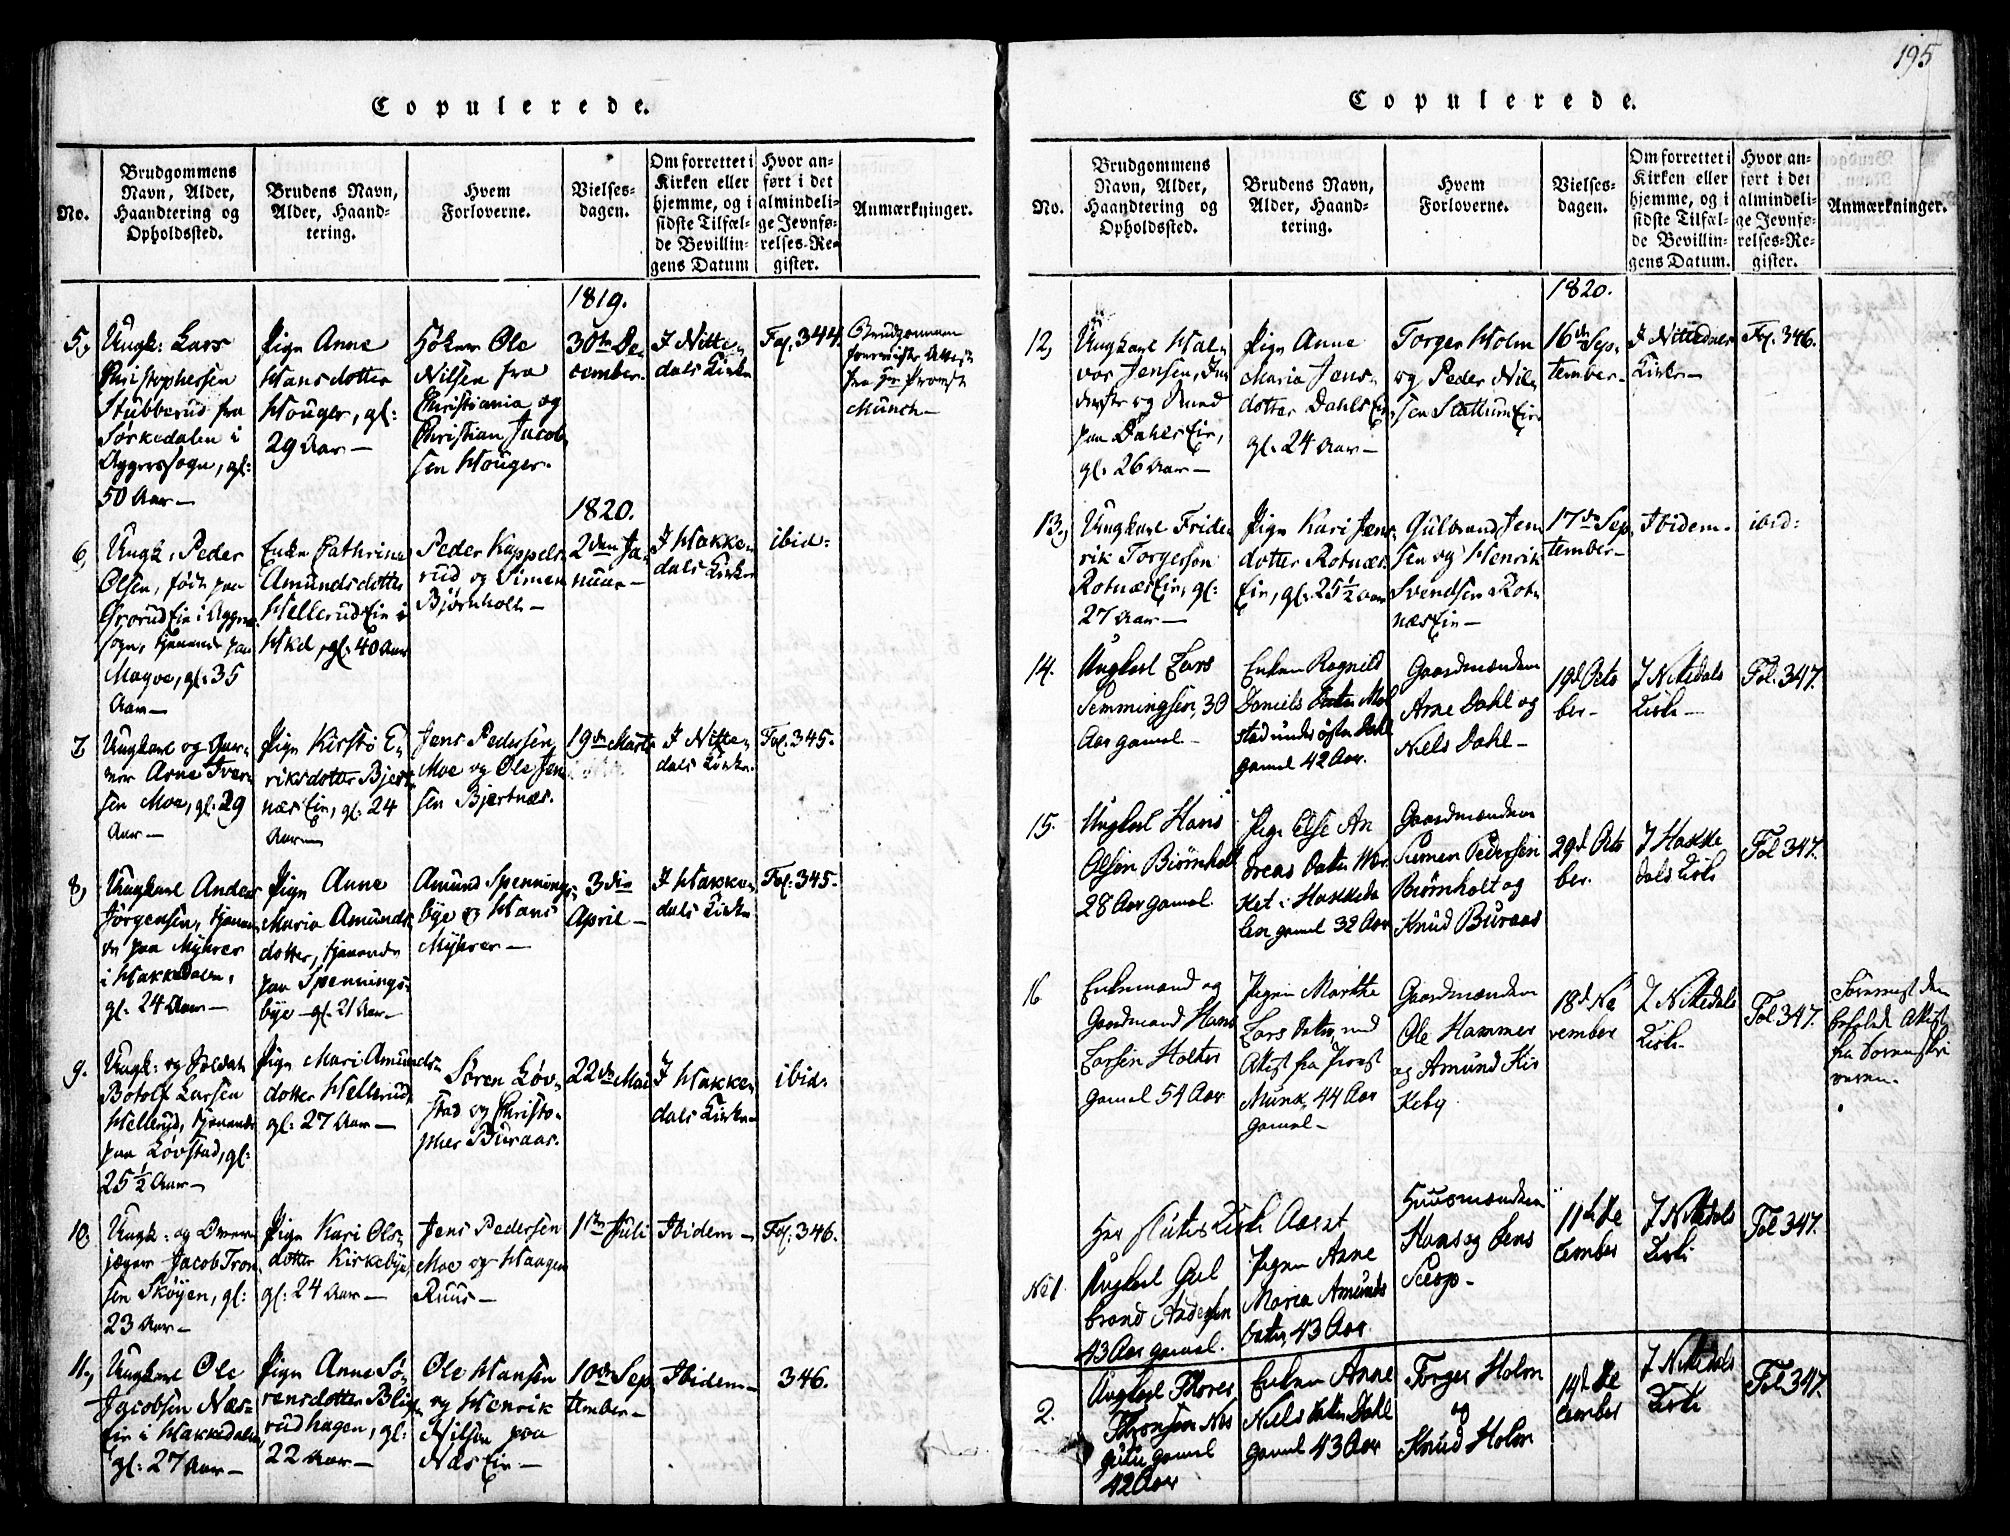 Copulerede.
No.
Brudgommens
Navn, Alder,
Haandtering og
Opholdssted.
Brudens Navn,
Alder, Haand-
tering.
Hvem
Forloverne.
Vielses-
dagen.
Om forrettet i
Kirken eller
hjemme, og i
sidste Tilfæl-
de Bevillin-
gens Datum
Hvor an-
ført i det
almindeli-
ge Jevnfø-
relses-Re-
gister.
Anmærkninger.
5,
Ungk: Lars
Christophersen
Stubberud fra
Sørkedalen i
Aggerssogn, gl:
50 Aar—
Pige Anne
Hansdotter
Houger, gl:
29 Aar—
Ole
Nilsen fra
Christiania og
Christian Jacob
sen Houger.
1819.
30te De,
cember.
I Nitte,
dals Kirke
Fol. 344.
Brudgommen
fra Hr Provst
Munch—
6,
Ungk: Peder
Olsen, født paa
Grorud Eie i Agger
sogn, tjenende paa
Magve, gl: 35
Aar—
Enke Cathrine
Amundsdotter
Hellerud Eie i
Hkd, gl: 40 Aar
Peder Kappels
rud og Simen
Bjørnholt—
1820.
2den Ja,
nuar—
I Hakke,
dals Kirke
ibid:
7
Ungkarl og Gar-
ver Arne Iver
sen Moe, gl: 29
Aar—
Pige Kirsti E,
riksdotter Bjert
næs Eie, gl: 24
Aar—
Jens Pedersen
Moe og Ole Jen
sen Bjertnæs.
19de Marts
I Nitte,
dals Kirke.
Fol. 345.
8,
Ungkarl Anders
Jørgensen, tjenen
de paa Myhrer
i Hakkedalen,
gl: 24 Aar—
Pige Anne
Maria Amunds
dotter, tjenende
paa Spennings-
bye—gl: 21 Aar—
Amund Spennings
bye og Hans
Myhrer—
3die
April—
I Hakke,
dals Kirke
Fol: 345.
9.
Ungk: og Soldat
Botolf Larsen
Hellerud, tjenende
paa Løvstad, gl:
25½ Aar—
Pige Mari Amunds-
dotter Hellerud
gl: 27 Aar—
Søren Løv-
stad og Christo-
pher Buraas.
22de Mai
I Hakke,
dals Kirke—
ibid:
10.
Ungk: og Over
jæger Jacob Tron
sen Skøyen, gl:
23 Aar—
Pige Kari Ols,
dotter Kirkebye,
gl: 24 Aar—
Jens Pedersen
Moe og Haagen
Ruus—
1ste Juli
Ibidem—
Fol: 346.
11,
Ungkarl Ole
Jacobsen Næs-
Eie i Hakkedalen,
gl: 27 Aar—
Pige Anne Sø,
rensdotter Blige
rudhagen, gl:
22 Aar—
Ole Hansen
og Henrik
Nilsen paa
Næs Eie—
10de Sep
tember—
Ibidem—
346.
195
Copulerede.
No.
Brudgommens
Navn, Alder,
Haandtering og
Opholdssted.
Brudens Navn,
Alder, Haand-
tering.
Hvem
Forloverne.
Vielses-
dagen.
Om forrettet i
Kirken eller
hjemme, og i
sidste Tilfæl-
de Bevillin-
gens Datum.
Hvor an-
ført i det
almindeli-
ge Jevnfø-
relses-Re-
gister.
Anmærkninger.
12,
Ungkarl Hal,
vor Jensen,
paa Dahls Eie,
gl: 26 Aar—
Pige Anne
Maria Jens,
dotter Dahls Eie
gl: 24 Aar—
Torger Holm
og Peder Nil,
sen Slattum Eie
1820.
16de Sep,
tember—
I Nittedals
Kirke—
Fol. 346.
13,
Ungkarl Fride
rik Torgersen
Rotnæs Eie, gl:
27 Aar—
Pige Kari Jens
dotter Rotnæs
Eie, gl: 25½ Aar
Gulbrand Jen
sen og Henrik
Svendsen Rot,
næs Eie—
17de Sep,
tember—
Ibidem.
ibid:
14.
Ungkarl Lars
Semmingsen, 30
Aar gamel—
Enken Ragnild
Daniels Datter Mol
stad under østre Dahl
gamel 42 Aar.
Gaardmændene
Arne Dahl og
Niels Dahl—
19d Octo
ber—
I Nittedals
Kirke—
Fol. 347.
15.
Ungkarl Hans
Olsen Biørnholt
28 Aar gamel.
Pige Else An
dreas Datter Mar
ket i Hakkeda
len gamel 32 Aar
Gaardmændene
Simen Pedersen
Biørnholt og
Knud Buraas
29d Octo
ber.
I Hakke
dals Kirke
Fol 347.
16
Enkemand og
Gaardmand Hans
Larsen Holter
gamel 54 Aar
Pigen Marthe
Lars Datter, med
Attest fra Provst
Munk, 44 Aar
gamel—
Gaardmændene
Ole Hammer
og Amund Kir
keby
18d No
vember
I Nittedals
Kirke.
Fol 347.
befalede Attest
fra
Her slutes Kirke Aaret
No 1.
Ungkarl Gul
brand Andersen
43 Aar gamel.
Pigen Anne
Maria Amunds
Datter, 43 Aar.
Huusmændene
Hans og Jens
Seesp—
11te De
cember
I Nittedals
Kirke
Fol 347.
2.
Ungkarl Thores
Thronsen Nes
gamel
42 Aar
Enken Anne
Niels Datter Dahl
gamel 43 Aar
Torger Holm
og
Knud Holm
19d De
cember
I Nittedals
Kirke
Fol 347.